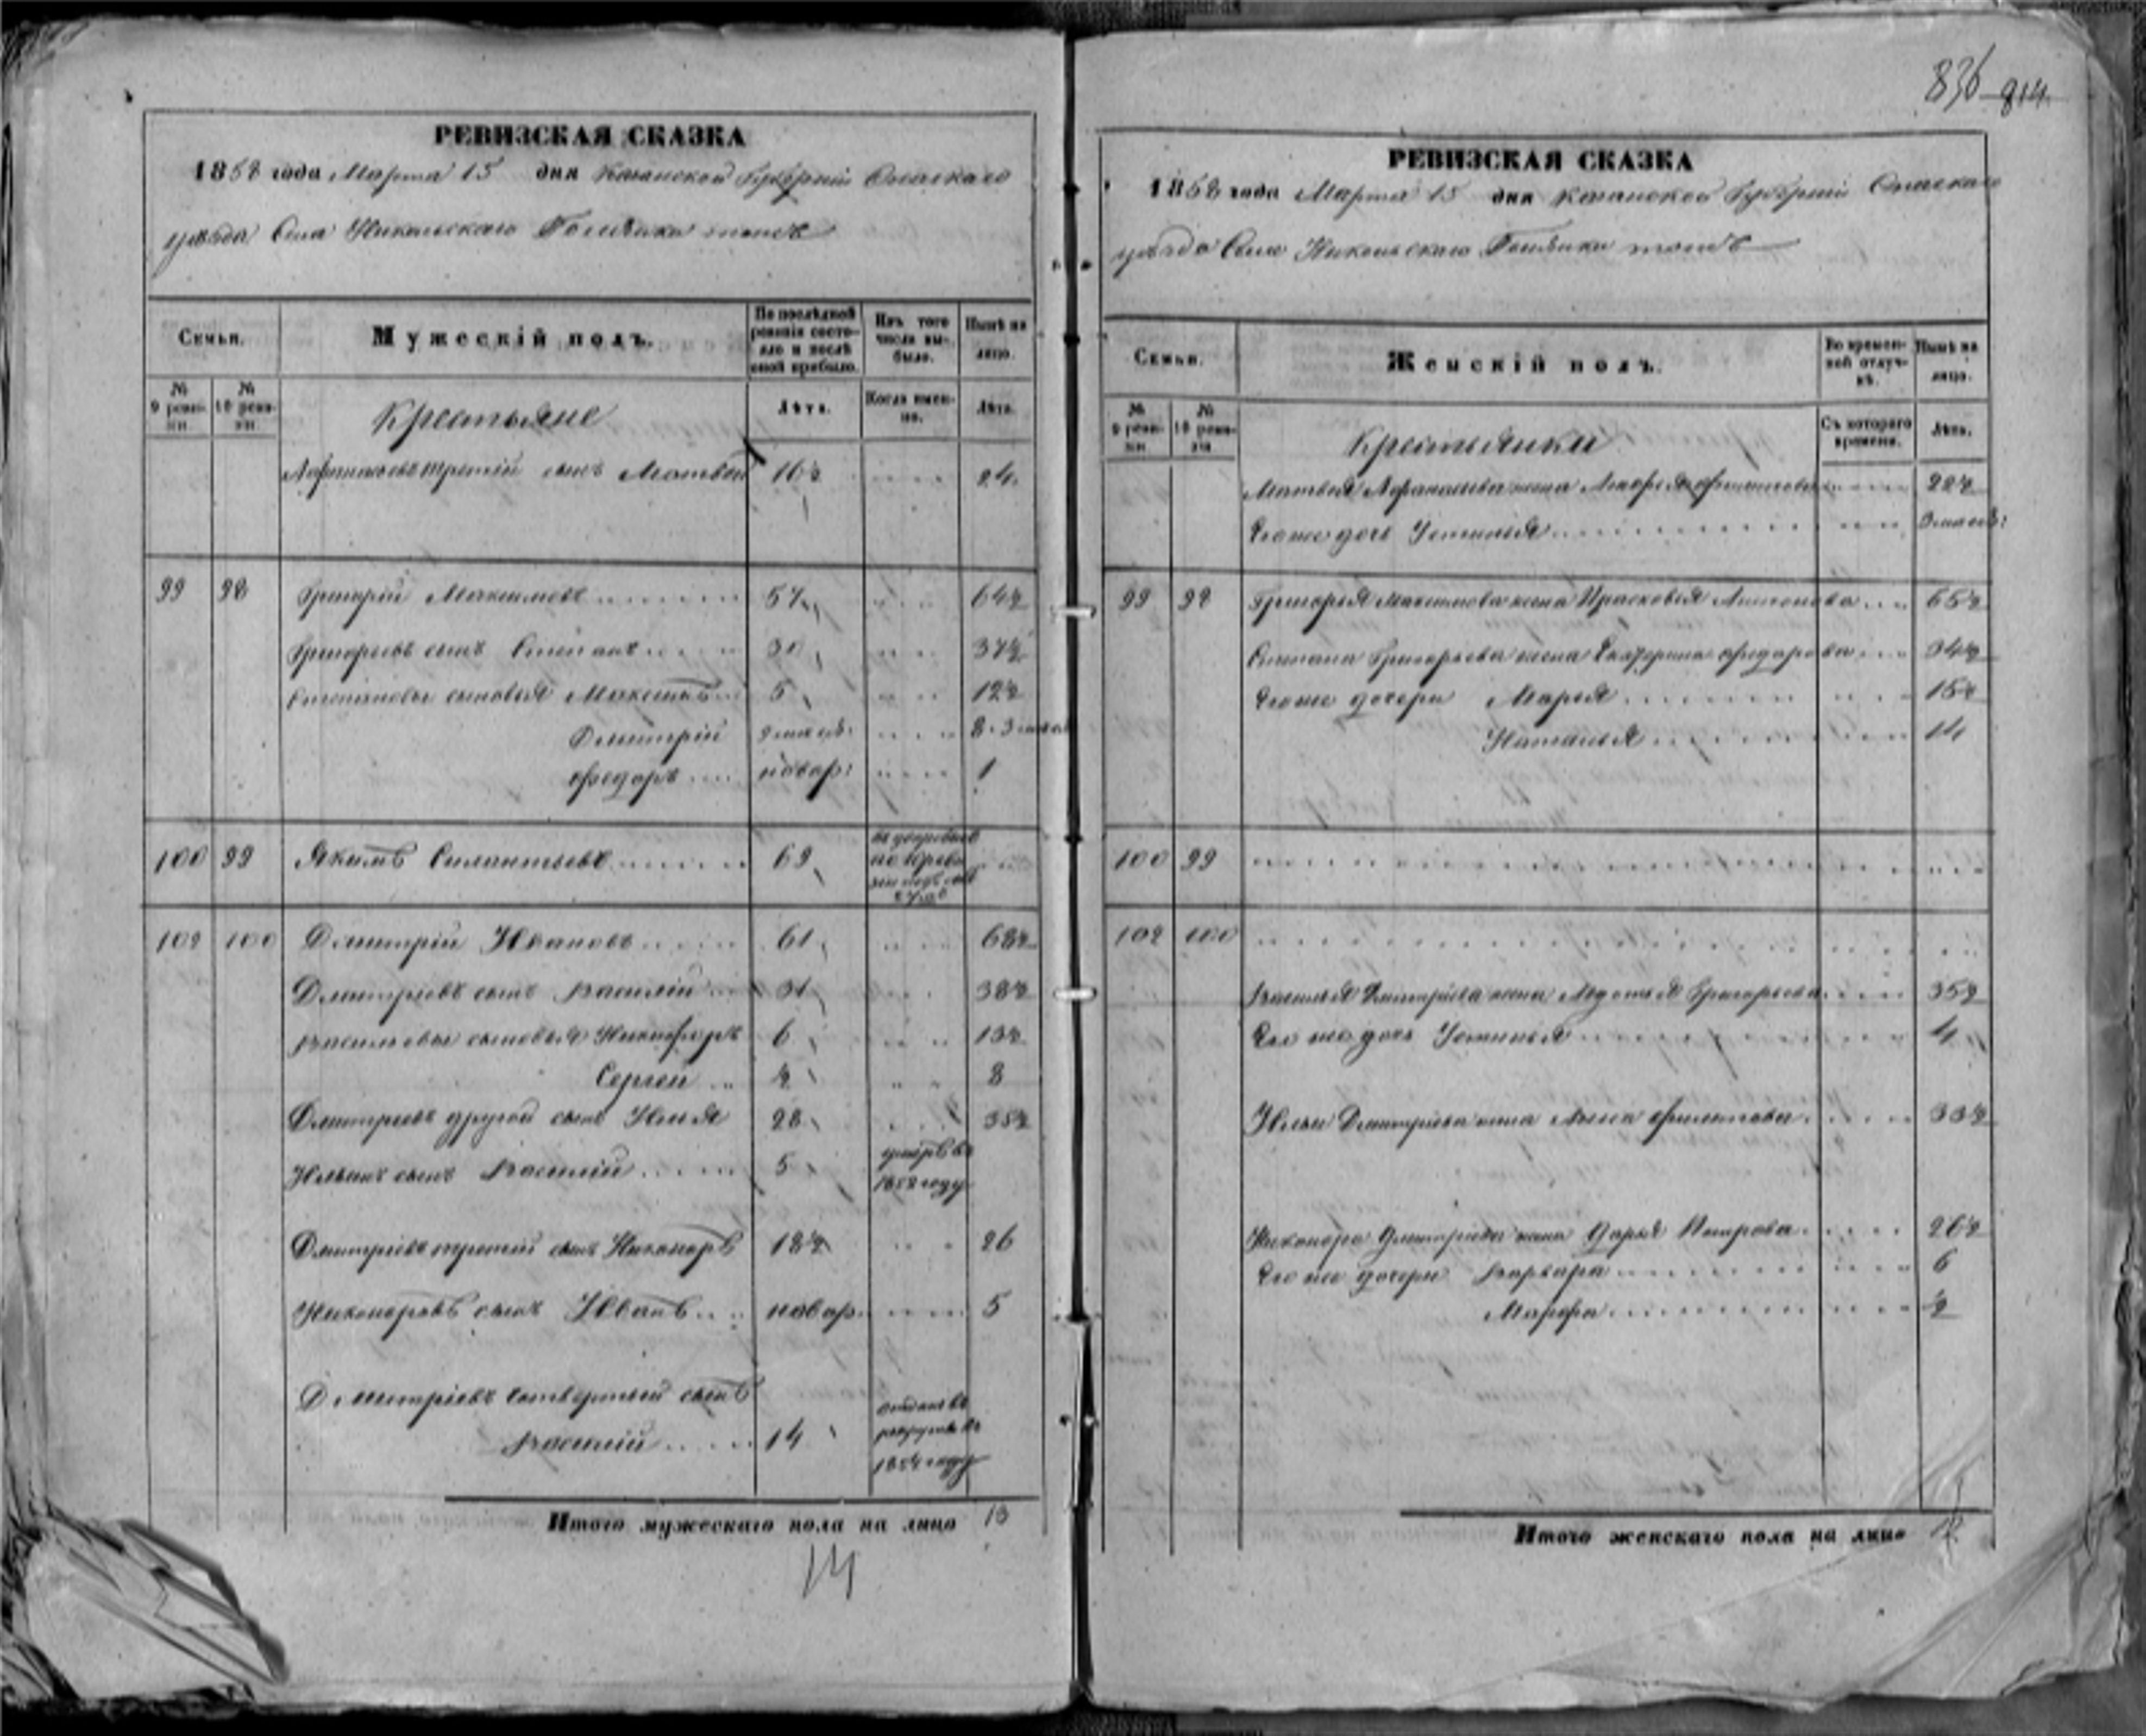 836 814.
РЕВИЗСКАЯ СКАЗКА
1858 года Марта 15 дня Казанской Губерніи Спаскаго
уѣзда Села Никольскаго тожъ
Семьи.
Мужескій полъ.
По послѣдней ревизіи состояло и послѣ оной прибыло.
Изъ того числа выбыло.
Нынѣ на лицо.
№ 9 ревизіи.
№ 10 ревизіи.
Крестьяне
Лѣта.
Когда именно.
Лѣта.
Афанасьевъ третій сынъ Матвей 16½ 24
99 98 Григорій Максимовъ 57 64½
Григорьевъ сынъ Степанъ 30 37½
Степановы сыновья Максимъ 5 12½
Дмитрій 9 мѣсяц: 8
Федоръ новор: 1
100 99 Якимъ Силантьевъ 69
102 100 Дмитрій Ивановъ 61 68½
Дмитріевъ сынъ Василій 31 38½
Васильевы сыновья Никифоръ 6 13½
Сергей ½ 8
Дмитріевъ другой сынъ Илья 28 35½
Ильинъ сынъ Василій 5 умеръ въ
году
Дмитріевъ третій сынъ Никоноръ 18½ 26
Никоноровъ сынъ Иванъ новор. 5
Дмитріевъ четвертый сынъ
Василій 14 отданъ въ рекруты въ 1854 году
Итого мужескаго пола на лицо 13
14
РЕВИЗСКАЯ СКАЗКА
1858 года Марта 15 дня Казанской Губерніи Спаскаго
уѣзда Села Никольскаго тожъ
Семьи.
Женскій полъ.
Во временной отлучкѣ.
Нынѣ на лицо.
№ 9 ревизіи
№ 10 ревизіи
Крестьянки
Съ котораго времени.
Лѣта.
Матвея Афанасьева жена 22½
Его же дочь Устинья
99 98 Григорья Максимова жена Прасковья Антонова 65½
Степана Григорьева жена Екатерина Федорова 34½
Его же дочери Марья 15½
Наталья 11
100 99
102 100
Василья Дмитріева жена Авдотья Григорьева 35½
Его же дочь Устинья 4
Ильи Дмитріева жена Анна Филипова 33½
Никонора Дмитріева жена Дарья Петрова 26½
Его же дочери Варвара 6
Марфа ½
Итого женскаго пола на лицо